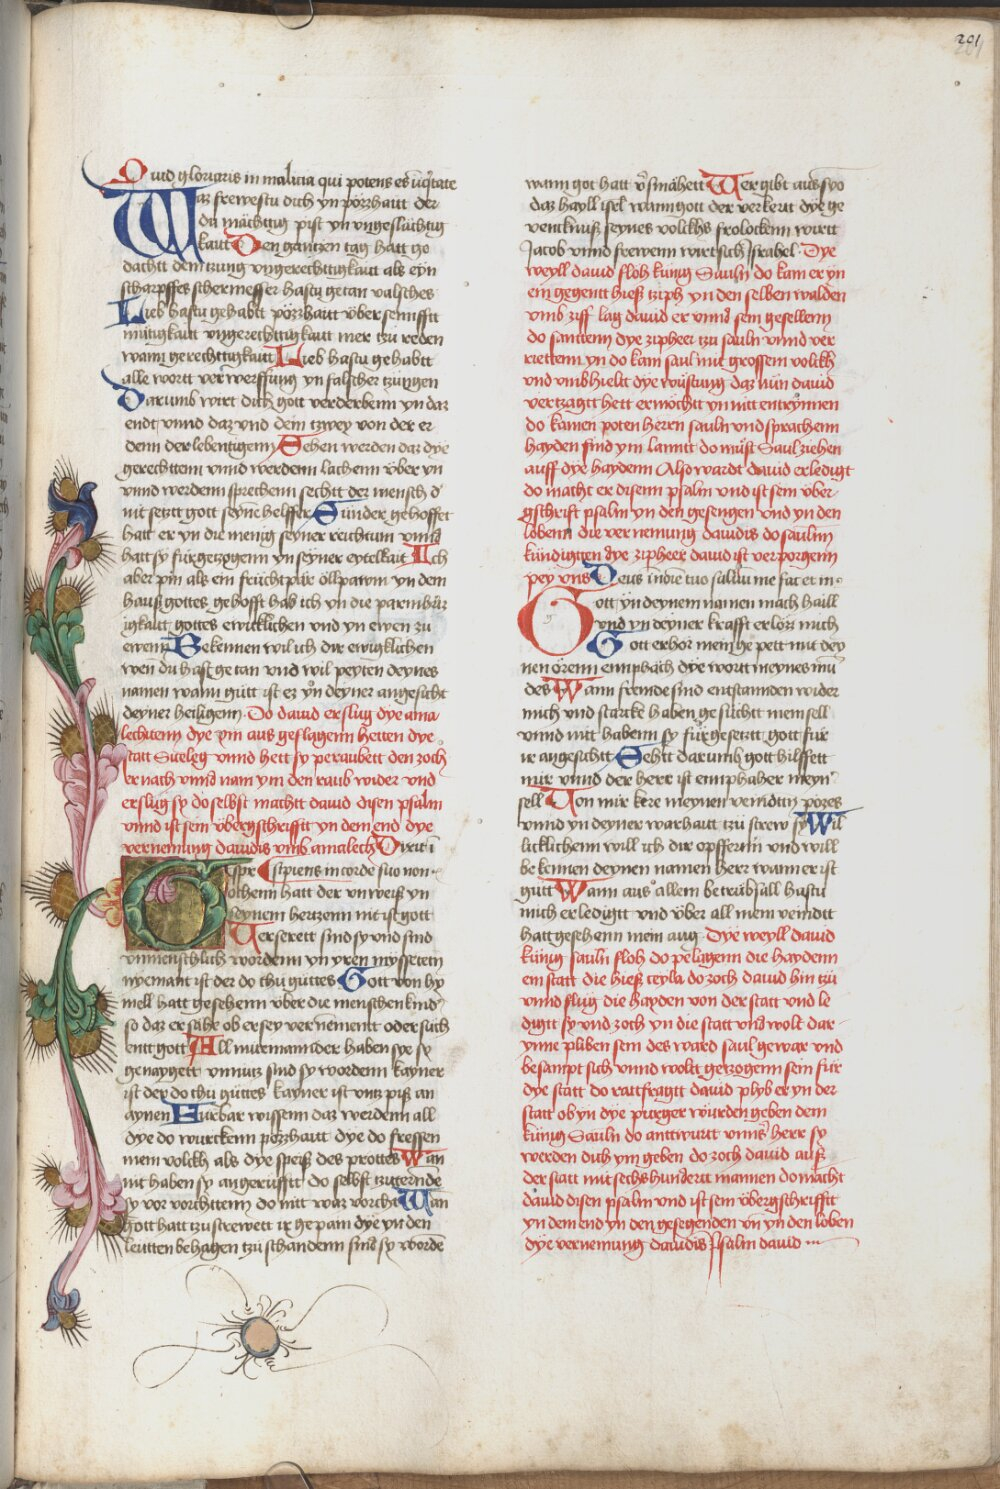 201
Quid gloriaris in malicia qui potens es iniqtate
Waz frewestu dich yn pözzhaitt der
du mächttig pist yn vngeslächtig
kaitt Den gantzen tag hatt ge
dachtt dein tzung vngerechttigkaitt als eyn
scharpffes schermesser hastu getan valsches
Lieb hastu gehabtt pözzhaitt über semfftt
müttigkaitt vngerechttigkaitt mer tzu reden
wann gerechttigkaitt Lieb hastu gehabtt
alle wortt ver werffung yn falscher tzüngen
Darumb wirt dich gott verderbenn yn daz
endt vnnd daz vnd dein tzwey von der er
denn der lebentigenn Sehen werden daz dye
gerechttenn vnnd werdenn lachenn über yn
vnnd werdenn sprechenn sechtt der mensch d
nit setztt gott seyne helffer Sunder gehoffet
hatt er yn die menig seyner reichtum vnnd
hatt sy fürgetzogenn yn seyner eytelkait Ich
aber pin als ein früchtpar ölpawm yn dem
hauß gottes gehofft hab ich yn die parmhärtz
igkaitt gottes ewicklichen vnd yn ewen zu
ewenn Bekennen wil ich dir ewigklichen
wen du hast getan vnd wil peyten deynes
namen wann gütt ist er yn deyner angesicht
deyner heiligenn Do dauid erslug dye ama
lechtenn dye ym aus geslagenn hetten dye
statt Siceleg vnnd hett sy peraubett den zoch
er nach vnnd nam ym den raub wider vnd
erslug sy do selbst machtt dauid disen psalm
vnnd ist sein übergschrifftt yn dem end dye
vernemung dauidis vmb amalech Dixit i
spr Insipiens in corde suo non
ochenn hatt der vnweiß yn
seynem hertzenn nit ist gott
Zerserett sind sy vnd sind
vnmenschlich wordenn yn yren myssetetn
nyemant ist der do thu güttes Gott von hy
mell hatt gesehenn über die menschen kind
so daz er sähe ob er sey vernementt oder such
entt gott All mitteinannder haben sye sy
genaygett vnnutz sind sy wordenn kayner
ist der do thu güttes kayner ist vntz piß an
aynen Fürbar wissenn daz werdenn all
dye do wurckenn pözzhaitt dye do fressen
mein volckh als dye speiß des prottes Wan
nit haben sy angerüfftt do selbst tzitterinde
sy vor vorchttenn do nitt waz vorcht Wan
gott hatt tzustrewett ir gepain dye yn den
leutten behagen tzü schandenn sind sy worde
wann got hatt vsmähett Wer gibt aus syo
daz hayll isrl wann gott der verkertt dye ge
venckniß seynes volckhs frolockenn wirtt
Jacob vnnd frewenn wirt sich Israhel Dye
weyll dauid floh künig Sauln do kam er yn
ein gegentt hieß tziph yn den selben walden
vmb ziff lag dauid er vnnd sein gesellenn
do santtenn dye zipheer tzu sauln vnnd ver
riettenn yn do kam saul mit grossem volckh
vnd vmbhieltt dye wüstung daz nün dauid
vertzagtt hett er möchtt yn nitt entrynnen
do kamen poten herrn sauln vnd sprachenn
hayden sind ym lanntt do müst Saul ziehen
auff dye haydenn Also wardt dauid erledigt
do macht er disenn psalm vnd ist sein über
gschrift psalm yn den gesengen vnd yn den
lobenn die vernemung dauidis do sauln
kündigtten dye zipheer dauid ist verporgenn
pey vns Deus in noie tuo saluum me fac et in
Gott yn deynem namen mach haill
vnd yn deyner krafft erlöz mich
Gott erhör mein gepett mit dey
nen örenn emphach dye wortt meynes mu
des Wann fremde sind enstannden wider
mich vnd starcke haben gesüchtt mein sell
vnnd nitt habenn sy fürgesetztt gott für
ir angesichtt Sehtt darumb gott hilffett
mir vnnd der herr ist emphaher meyn
sell Von mir kere meynen veindtn pözes
vnnd yn deyner warhaitt tzü strew sy Wil
licklichenn will ich dir opfferin vnd will
bekennen deynen namen herr wann er ist
gütt Wann aus allem betrübsall hastu
mich erledigtt vnd über all mein veindtt
hatt gesehenn mein aug Dye weyll dauid
künig sauln floh do pelagenn die haydenn
ein statt die hieß ceyla do zoch dauid hin tzü
vnnd slug die hayden von der statt vnd le
digtt sy vnd zoch yn die statt vnd wolt dar
ynne pliben sein des ward saul gewar vnd
besampt sich vnnd woltt getzogenn sein für
dye statt do rattfragtt dauid plyb er yn der
statt ob yn dye purger würden geben dem
künig Sauln do anttwurtt vnns herr sy
werden dich ym geben do zoch dauid auß
der statt mit sechshundertt mannen do macht
dauid disen psalm vnd ist sein übergschrifftt
yn dem end yn den gesegenden vn yn den loben
dye vernemung dauidis Psalm dauid